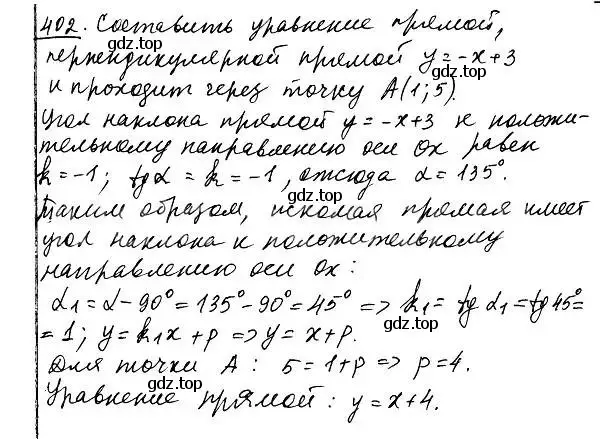 402. Составить уравнение прямой,
gdz.top
gdz.top
перпендикулярной прямой y=-x+3
и проходит через точку A(1;5).
gdz.top
Угол наклона прямой y=-x+3 к положи-
тельному направлению оси Ox равен
gdz.top
k=-1; tgα=k=-1, отсюда α=135°.
gdz.top
Таким образом, искомая прямая имеет
угол наклона к положительному
gdz.top
направлению оси Ox:
gdz.top
α1=α-90°=135°-90°=45° => k1=tgα1=tg45°=
=1; y=k1x+p => y=x+p.
gdz.top
Для точки A: 5=1+p => p=4.
gdz.top
Уравнение прямой: y=x+4.